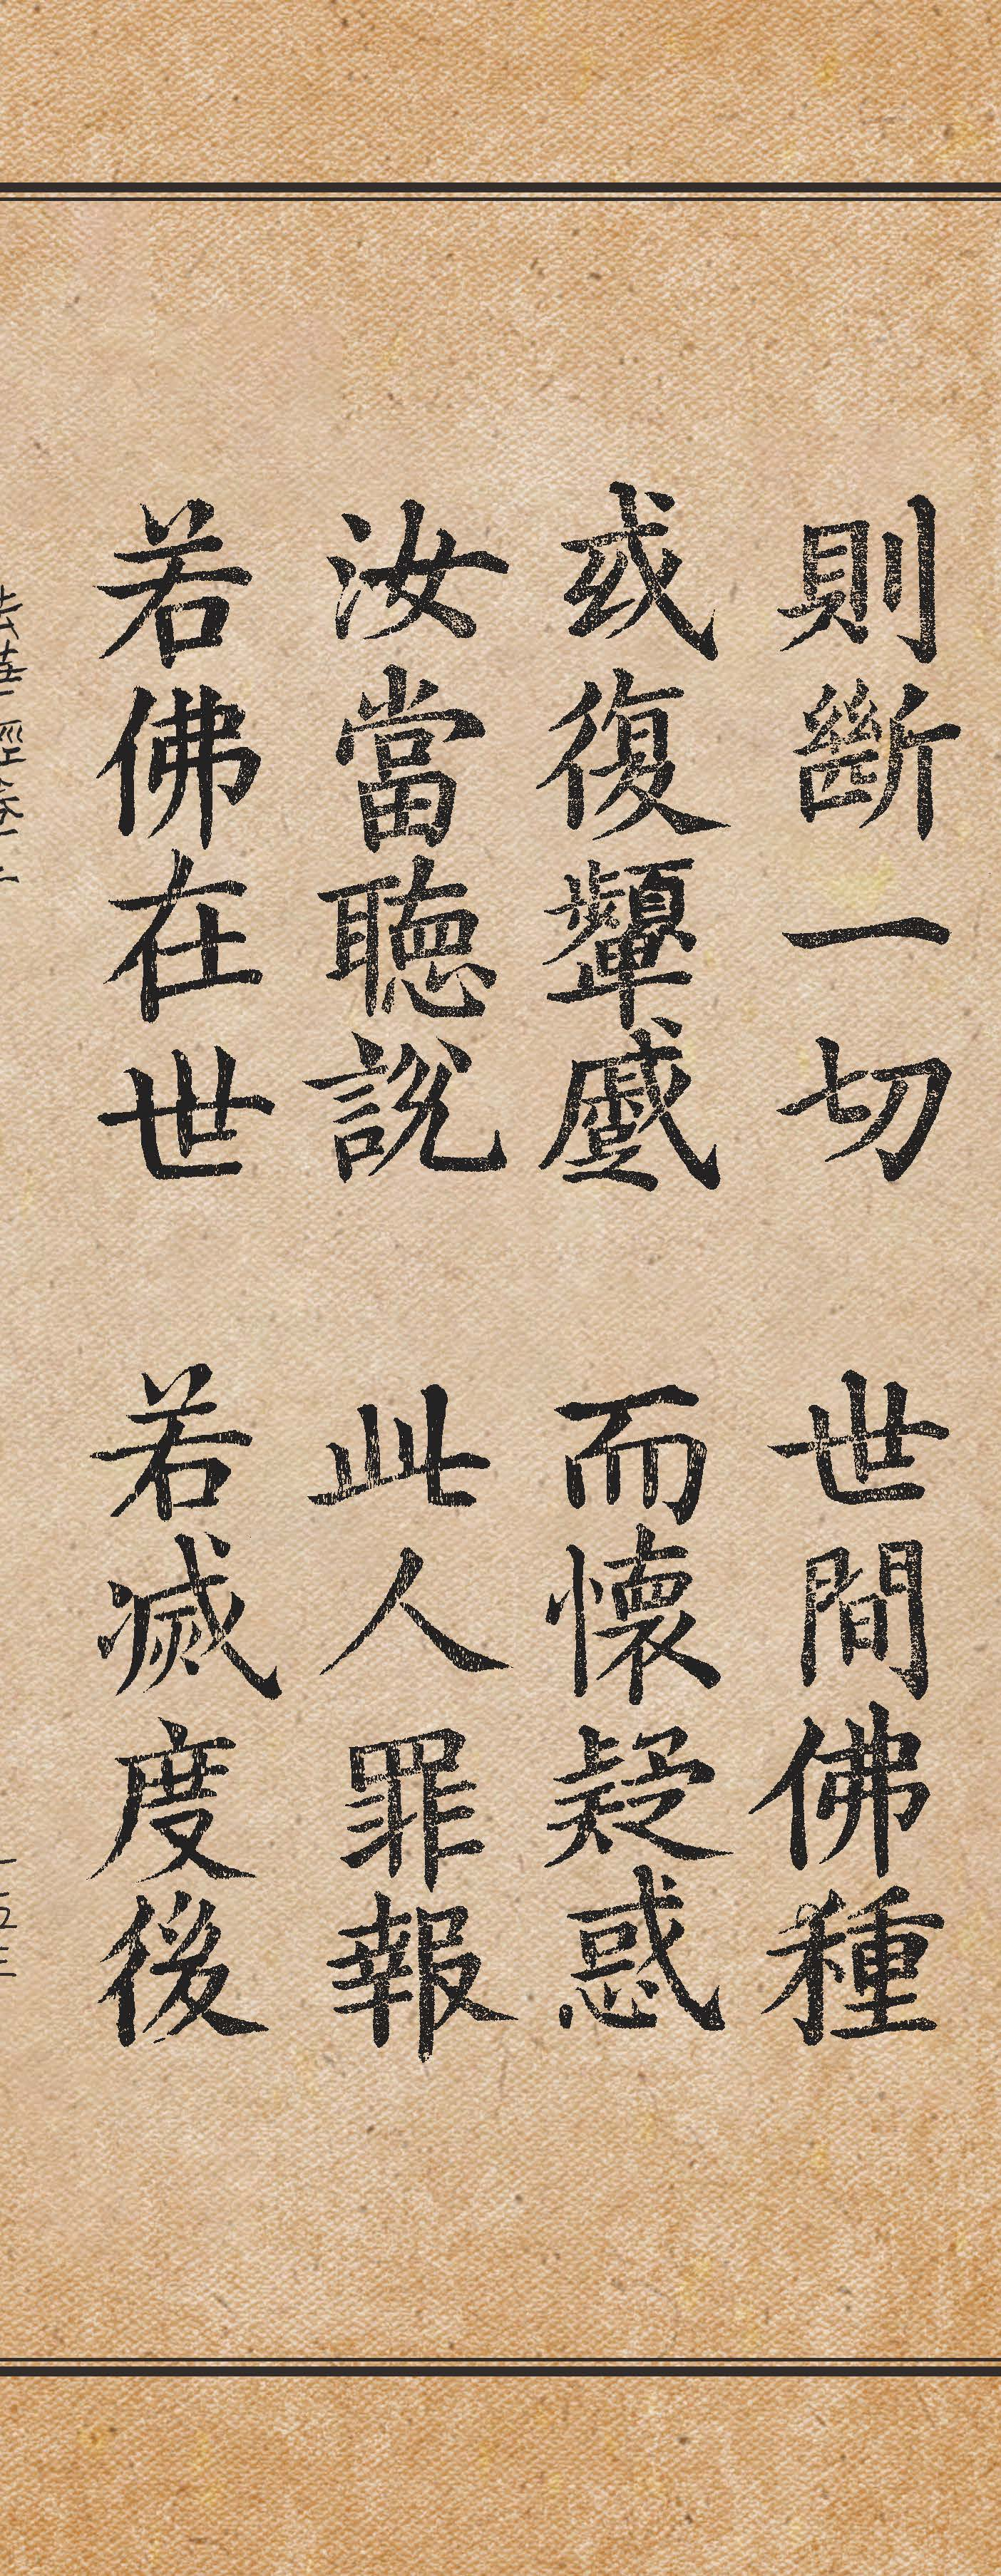 則斷一切 世間佛種
或復顰蹙 而懷疑惑
汝當聽說 此人罪報
若佛在世 若滅度後